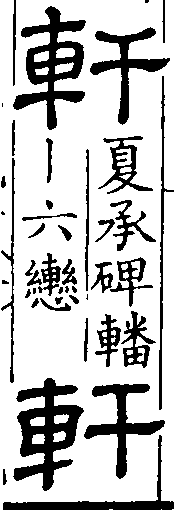 軒
夏承碑轓
丨六轡
軒